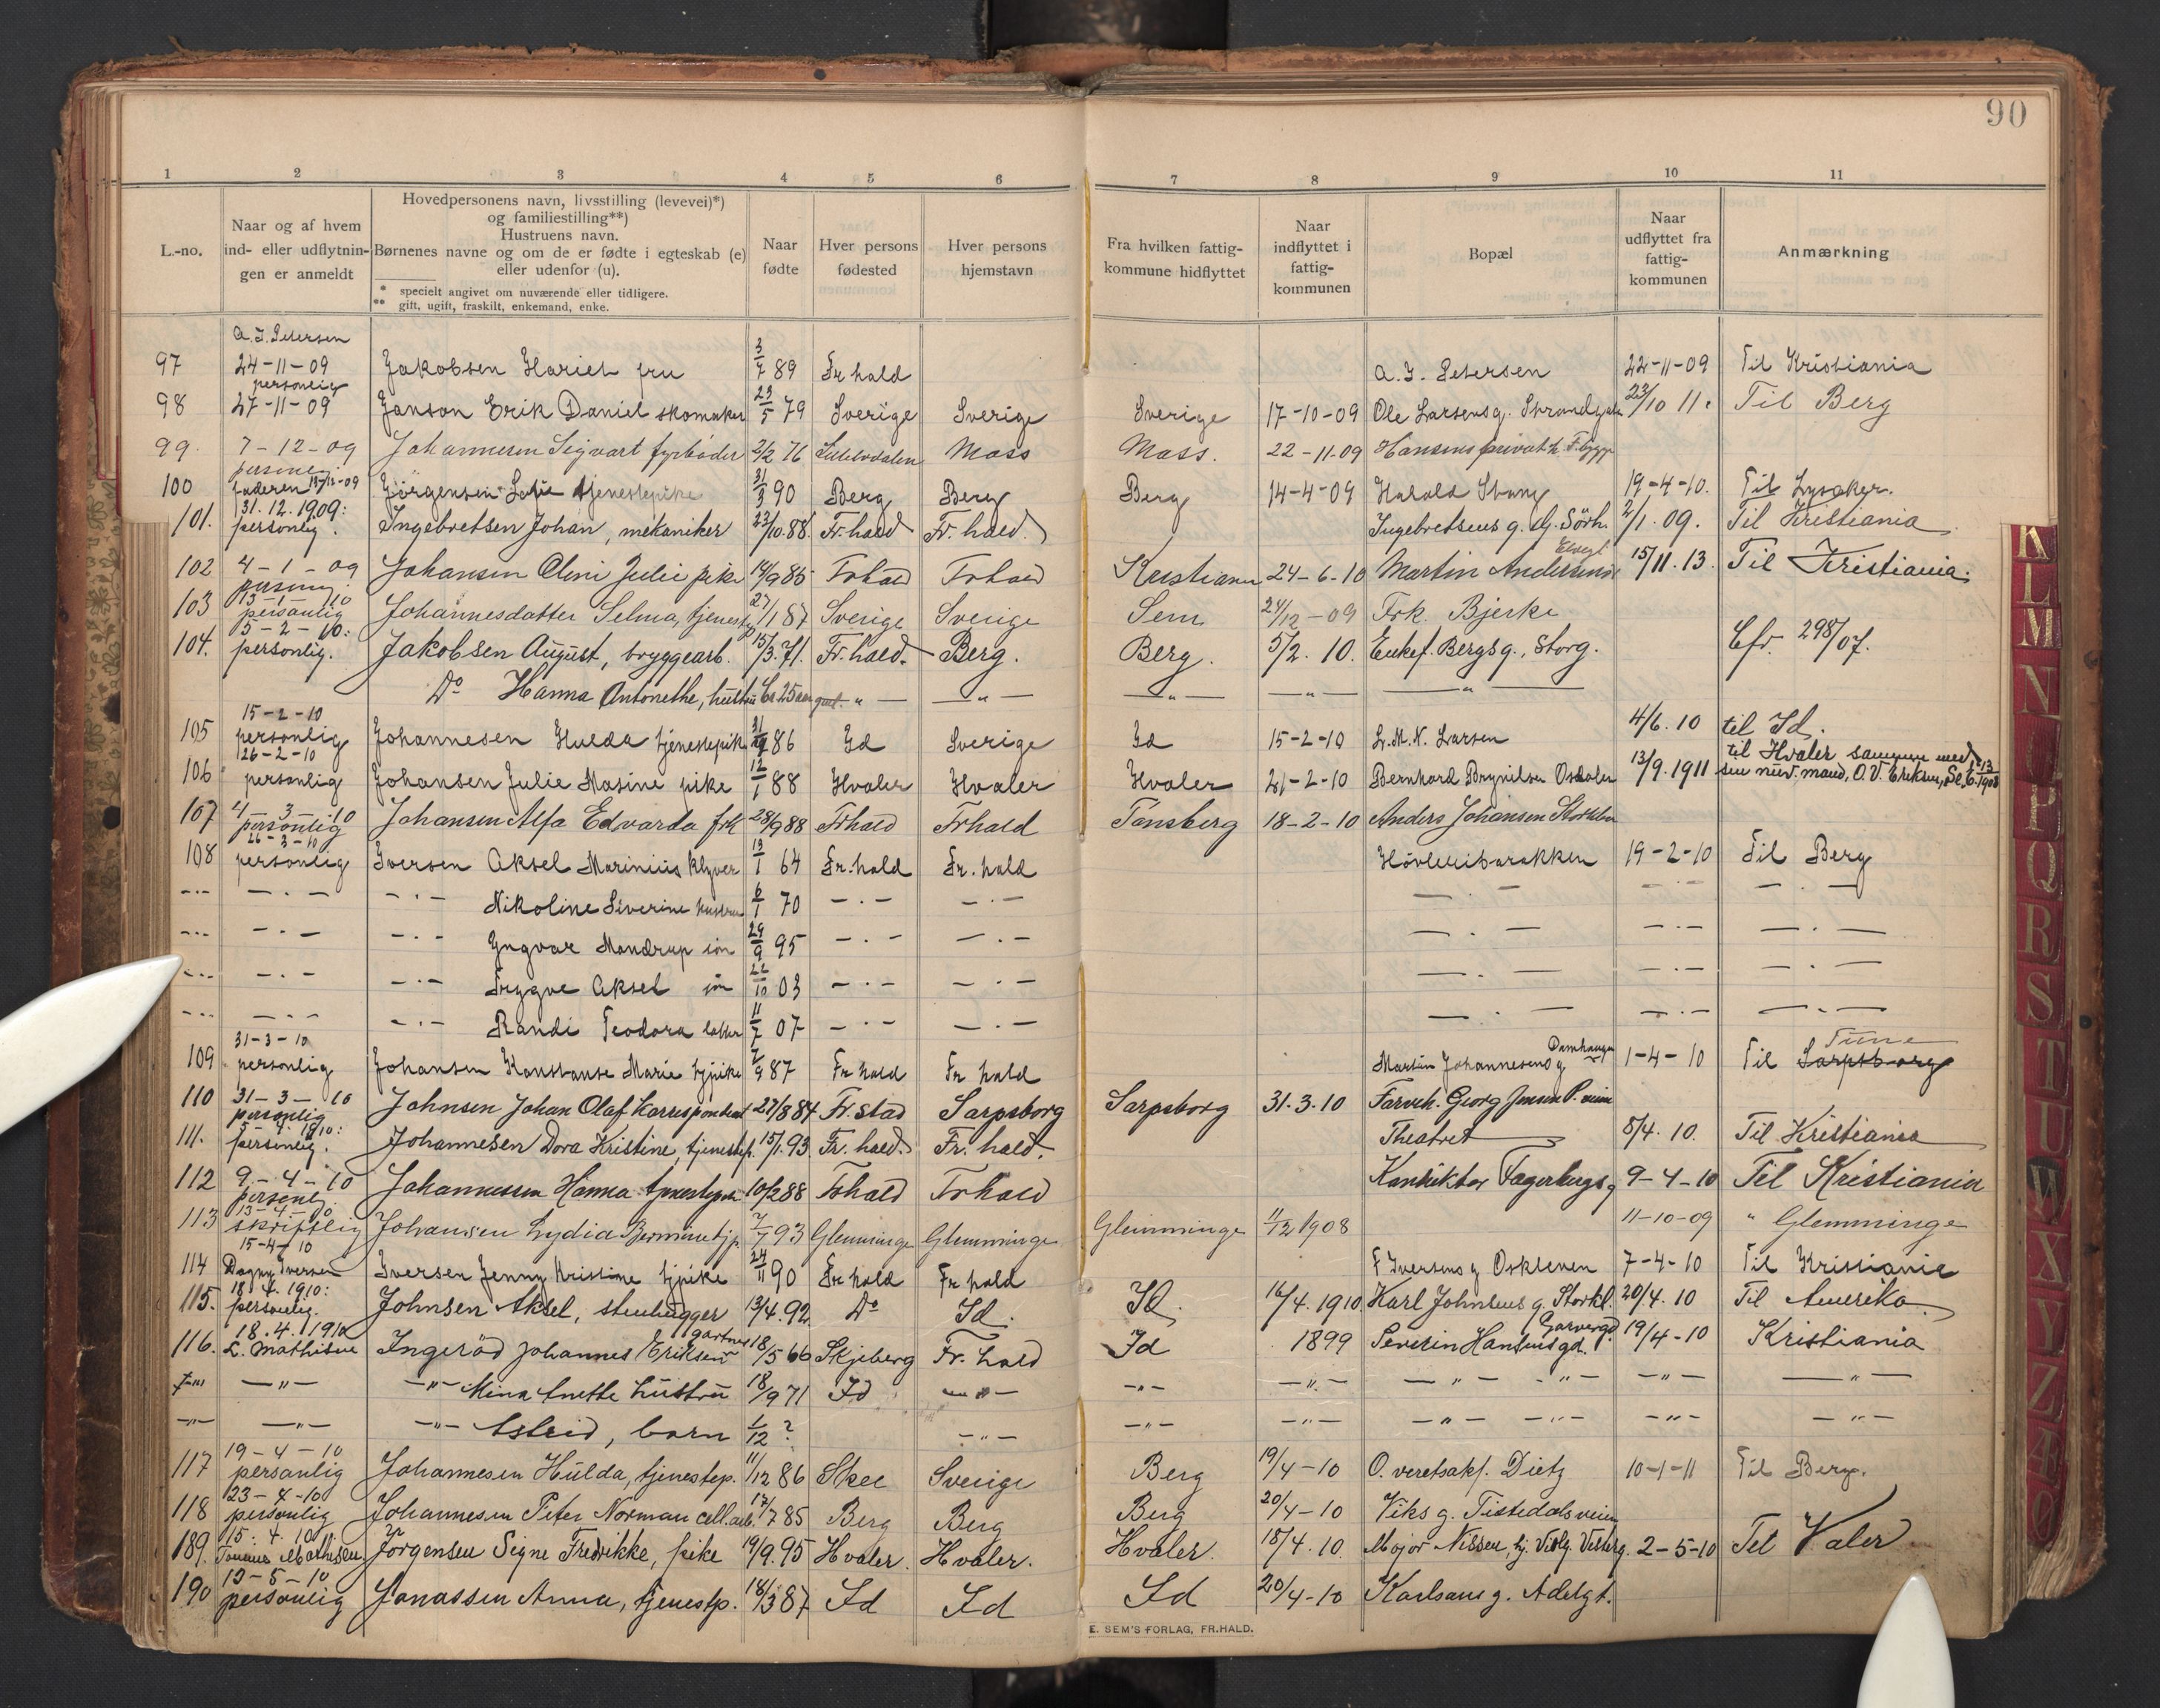 90
1 2 3 4 5 6 7 8 9 10 11
L.-no.
Naar og af hvem
ind- eller udflytnin-
gen er anmeldt
Hovedpersonens navn, livsstilling (levevei)*)
og familiestilling**)
Hustruens navn.
Børnenes navne og om de er fødte i egteskab (e)
eller udenfor (u).
* specielt angivet om nuværende eller tidligere.
** gift, ugift, fraskilt, enkemand, enke.
Naar
fødte
Hver persons
fødested
Hver persons
hjemstavn
Fra hvilken fattig-
kommune hidflyttet
Naar
indflyttet i
fattig-
kommunen
Bopæl
Naar
udflyttet fra
fattig-
kommunen
Anmærkning
A. J. Petersen
97 24-11-09 Jakobsen Hariet fru 3/7 89 Fr hald A. J. Petersen 22-11-09 Til Kristiania
personlig
98 27-11-09 Janson Erik Daniel skomaker 23/5 79 Sverige Sverige Sverige 17-10-09 Ole Larsens g. 23/10 11. Til Berg
99. 7-12-09 Johannesen Sigvart fyrbøder 2/2 76 Moss Moss. 22-11-09 Hansens privath.
personlig
100 Faderen 13/12-09 Jörgensen tjenestepike 31/3 90 Berg Berg Berg 14-4-09 Harald Stang 19-4-10. Til Lysaker.
31.12.1909:
101. personlig. Ingebretsen Johan, mekaniker 23/10.88. Fr. hald Fr. hald. Ingebretsens g. Sörh. 2/1.09. Til Kristiania
Elvegt
102 4-1-09 Johansen Oleni Julie pike 14/9 85 Frhald Frhald Kristiania 24-6-10 Martin Andersens 15/11.13. Til Kristiania.
personlig
13-1-10
103 personlig Johannesdatter Selma, tjenestp 27/1 87 Sverige Sverige Sem 24/12-09 Frk. Bjerke
5-2-10:
104. personlig. Jakobsen August, bryggearb. 15/3.71. Fr. hald. Berg. Berg. 5/2.10. Enkef. Bergs g., Storg. Cfr. 298/07.
Do Hanna Antonethe, hustru Ca 25 aar gml. " — — " — — " — — " — — " —
15-2-10
105 personlig Johannesen Hulda tjenestepike 86 Id Sverige Id 15-2-10 L. M. N. Larsen 4/6.10 til Id.
26-2-10 til Hvaler sammen med
106 personlig Johansen Julie Masine pike 12/1 88 Hvaler Hvaler Hvaler 21-2-10 Bernhard Brynilsen Osdalen 13/9.1911 sin nuv. mand, O. V. Eriksen,
107 4-3-10 Johansen Alfa Edvarda frk 28/9 88 Frhald Frhald Tønsberg 18-2-10 Anders Johansen
personlig
26-3-10
108 personlig Iversen Aksel Marinius klyver 13/1 64 Fr. hald Fr. hald Høvleribarakken 19-2-10 Til Berg
—·— —·— —·— Nikoline Severine hustru 6/1 70 —·— —·— —·— —·— —·—
—·— —·— —·— Yngvar Mandrup sön 29/9 95 —·— —·— —·— —·— —·—
—·— —·— —·— Trygve Aksel sön 22/10 03 —·— —·— —·— —·— —·—
—·— —·— —·— Randi Teodora datter 11/7 07 —·— —·— —·— —·— —·—
31-3-10 Damhaugen Tune
109 personlig Johansen Konstanse Marie tjpike 7/9 87 Fr hald Fr hald Martin Johannesens g 1-4-10 Til Sarpsborg
110 31-3-10 Johnsen Johan Olaf Korrespondent 27/8 84 Fr. stad Sarpsborg Sarpsborg 31.3.10 Farveh. Georg Jensen P. veien
personlig
1910:
111. personlig. Johannesen Dora Kristine, tjenestep. 15/1.93. Fr. hald. Fr. hald. Theatret 8/4.10. Til Kristiania
112 9-4-10 Johannessen Hanna tjenestepike 10/2 88 Frhald Frhald Konduktør Fagerbergs g 9-4-10 Til Kristiania
personlig
13-4-10
113 skriftlig Johansen Lydia Bermine tjp. 7/7 93 Glemminge Glemminge Glemminge 11/12 1908 11-10-09 " Glemminge
15-4-10
114 Dagny Iversen Iversen Jenny Kristine tjpike 24/11 90 Fr hald Fr hald F Iversens g Oskleven 7-4-10 Til Kristiania
18.4.1910:
115. personlig. Johnsen Aksel, stenhugger 13/4.92. Do Id. Id. 16/4.1910. Karl Johnsens g. Storkl. 20/4.10 Til Amerika.
18.4.1910 gartner Garverg.
116. L. Mathisen Ingeröd Johannes Eriksen 18/5 66 Skjeberg Fr. hald Id 1899 Severin Hansens gd. 19/4-10 Kristiania
—"— —"— Mina Anette hustru 18/9 71 Id —"— —"— —"— —"— —"— —"— —"—
—"— —"— —"— Astrid, barn 1/12 ? —"— —"— —"— —"— —"— —"— —"—
19-4-10
117 personlig Johannesen Hulda, tjenestep. 11/12 86 Skee Sverige Berg 19/4-10 O. veretsakf. Dietz 10-1-11 Til Berg.
23-4-10
118 personlig Johannesen Peter Norman cell.arb. 17/7 85 Berg Berg Berg 20/4-10 Viks g. Tistedalsveien
15.4.10
189. Tomas Mathisen Jörgensen Signe Fredrikke, pike 19/9.95 Hvaler. Hvaler. Hvaler. 18/4.10. Major Nissen, 2-5-10 Til Valer
13-5-10
190 personlig Jonassen Anna, tjenestp. 18/3 87 Id Id Id 20/4-10 Karlsens g. Adelgt.
E. SEM'S FORLAG, FR.HALD.
K
L
M
N
O
P
Q
R
S
T
U
W
X
Y
Z
Æ
Ø